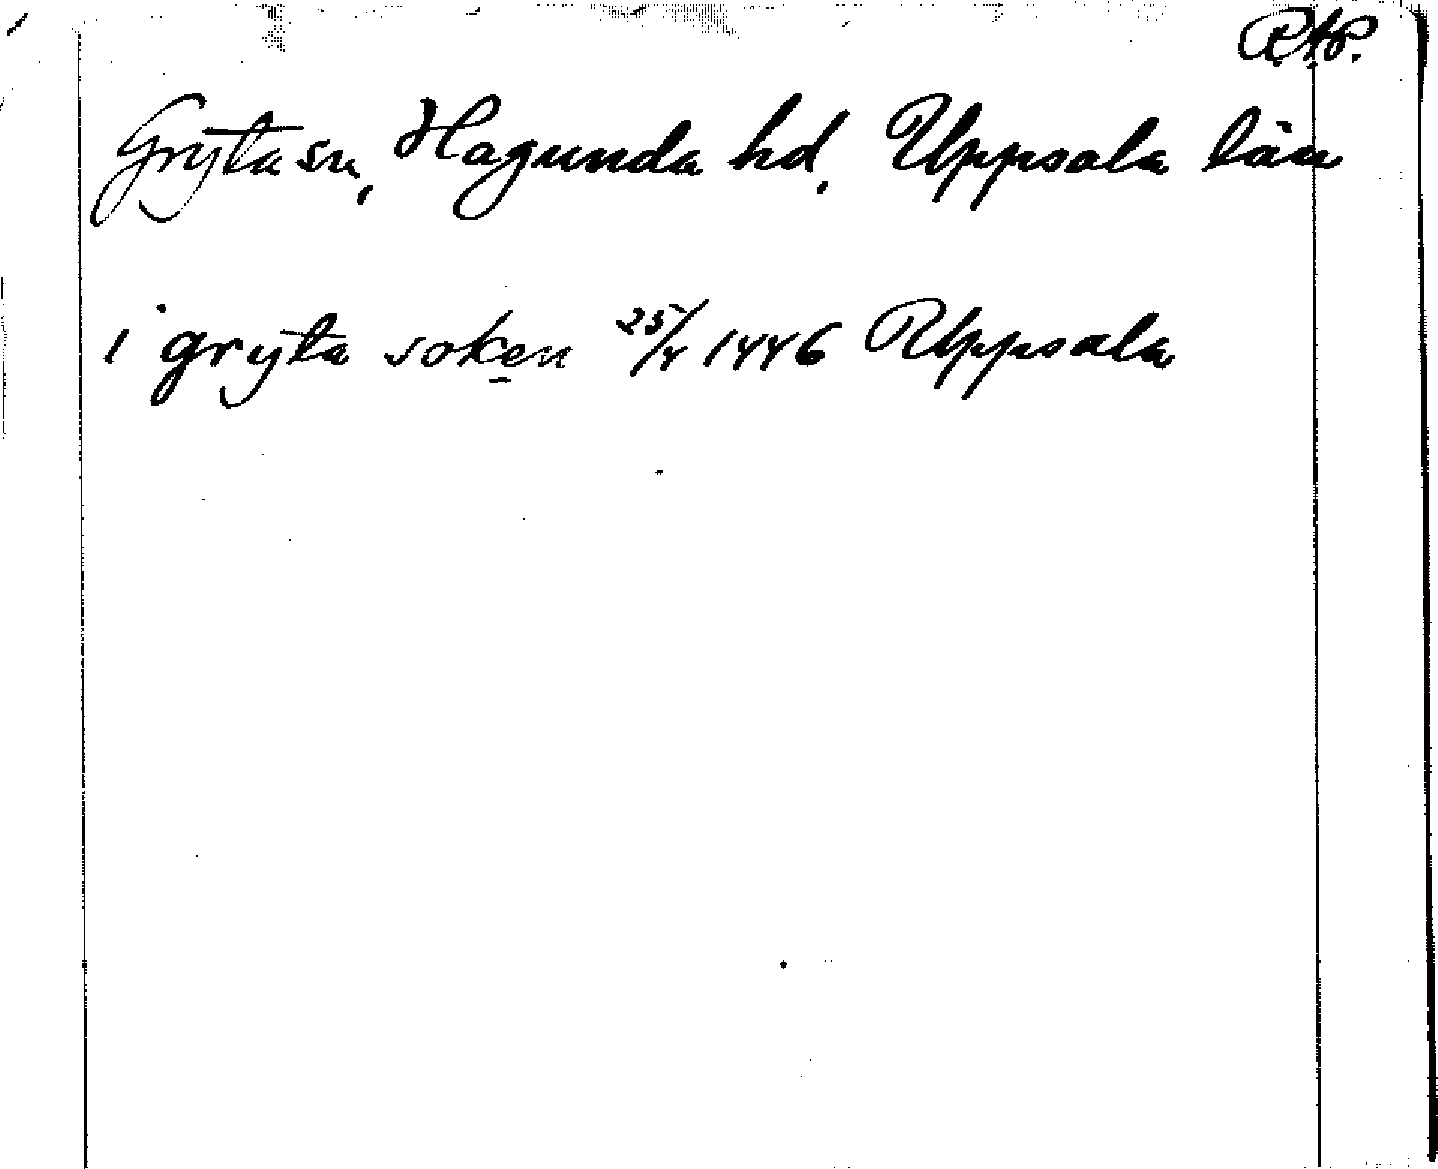 R.A.P.
Gryta sn, Hagunda hd, Uppsala län
i gryta soken 25/4 1446 Uppsala